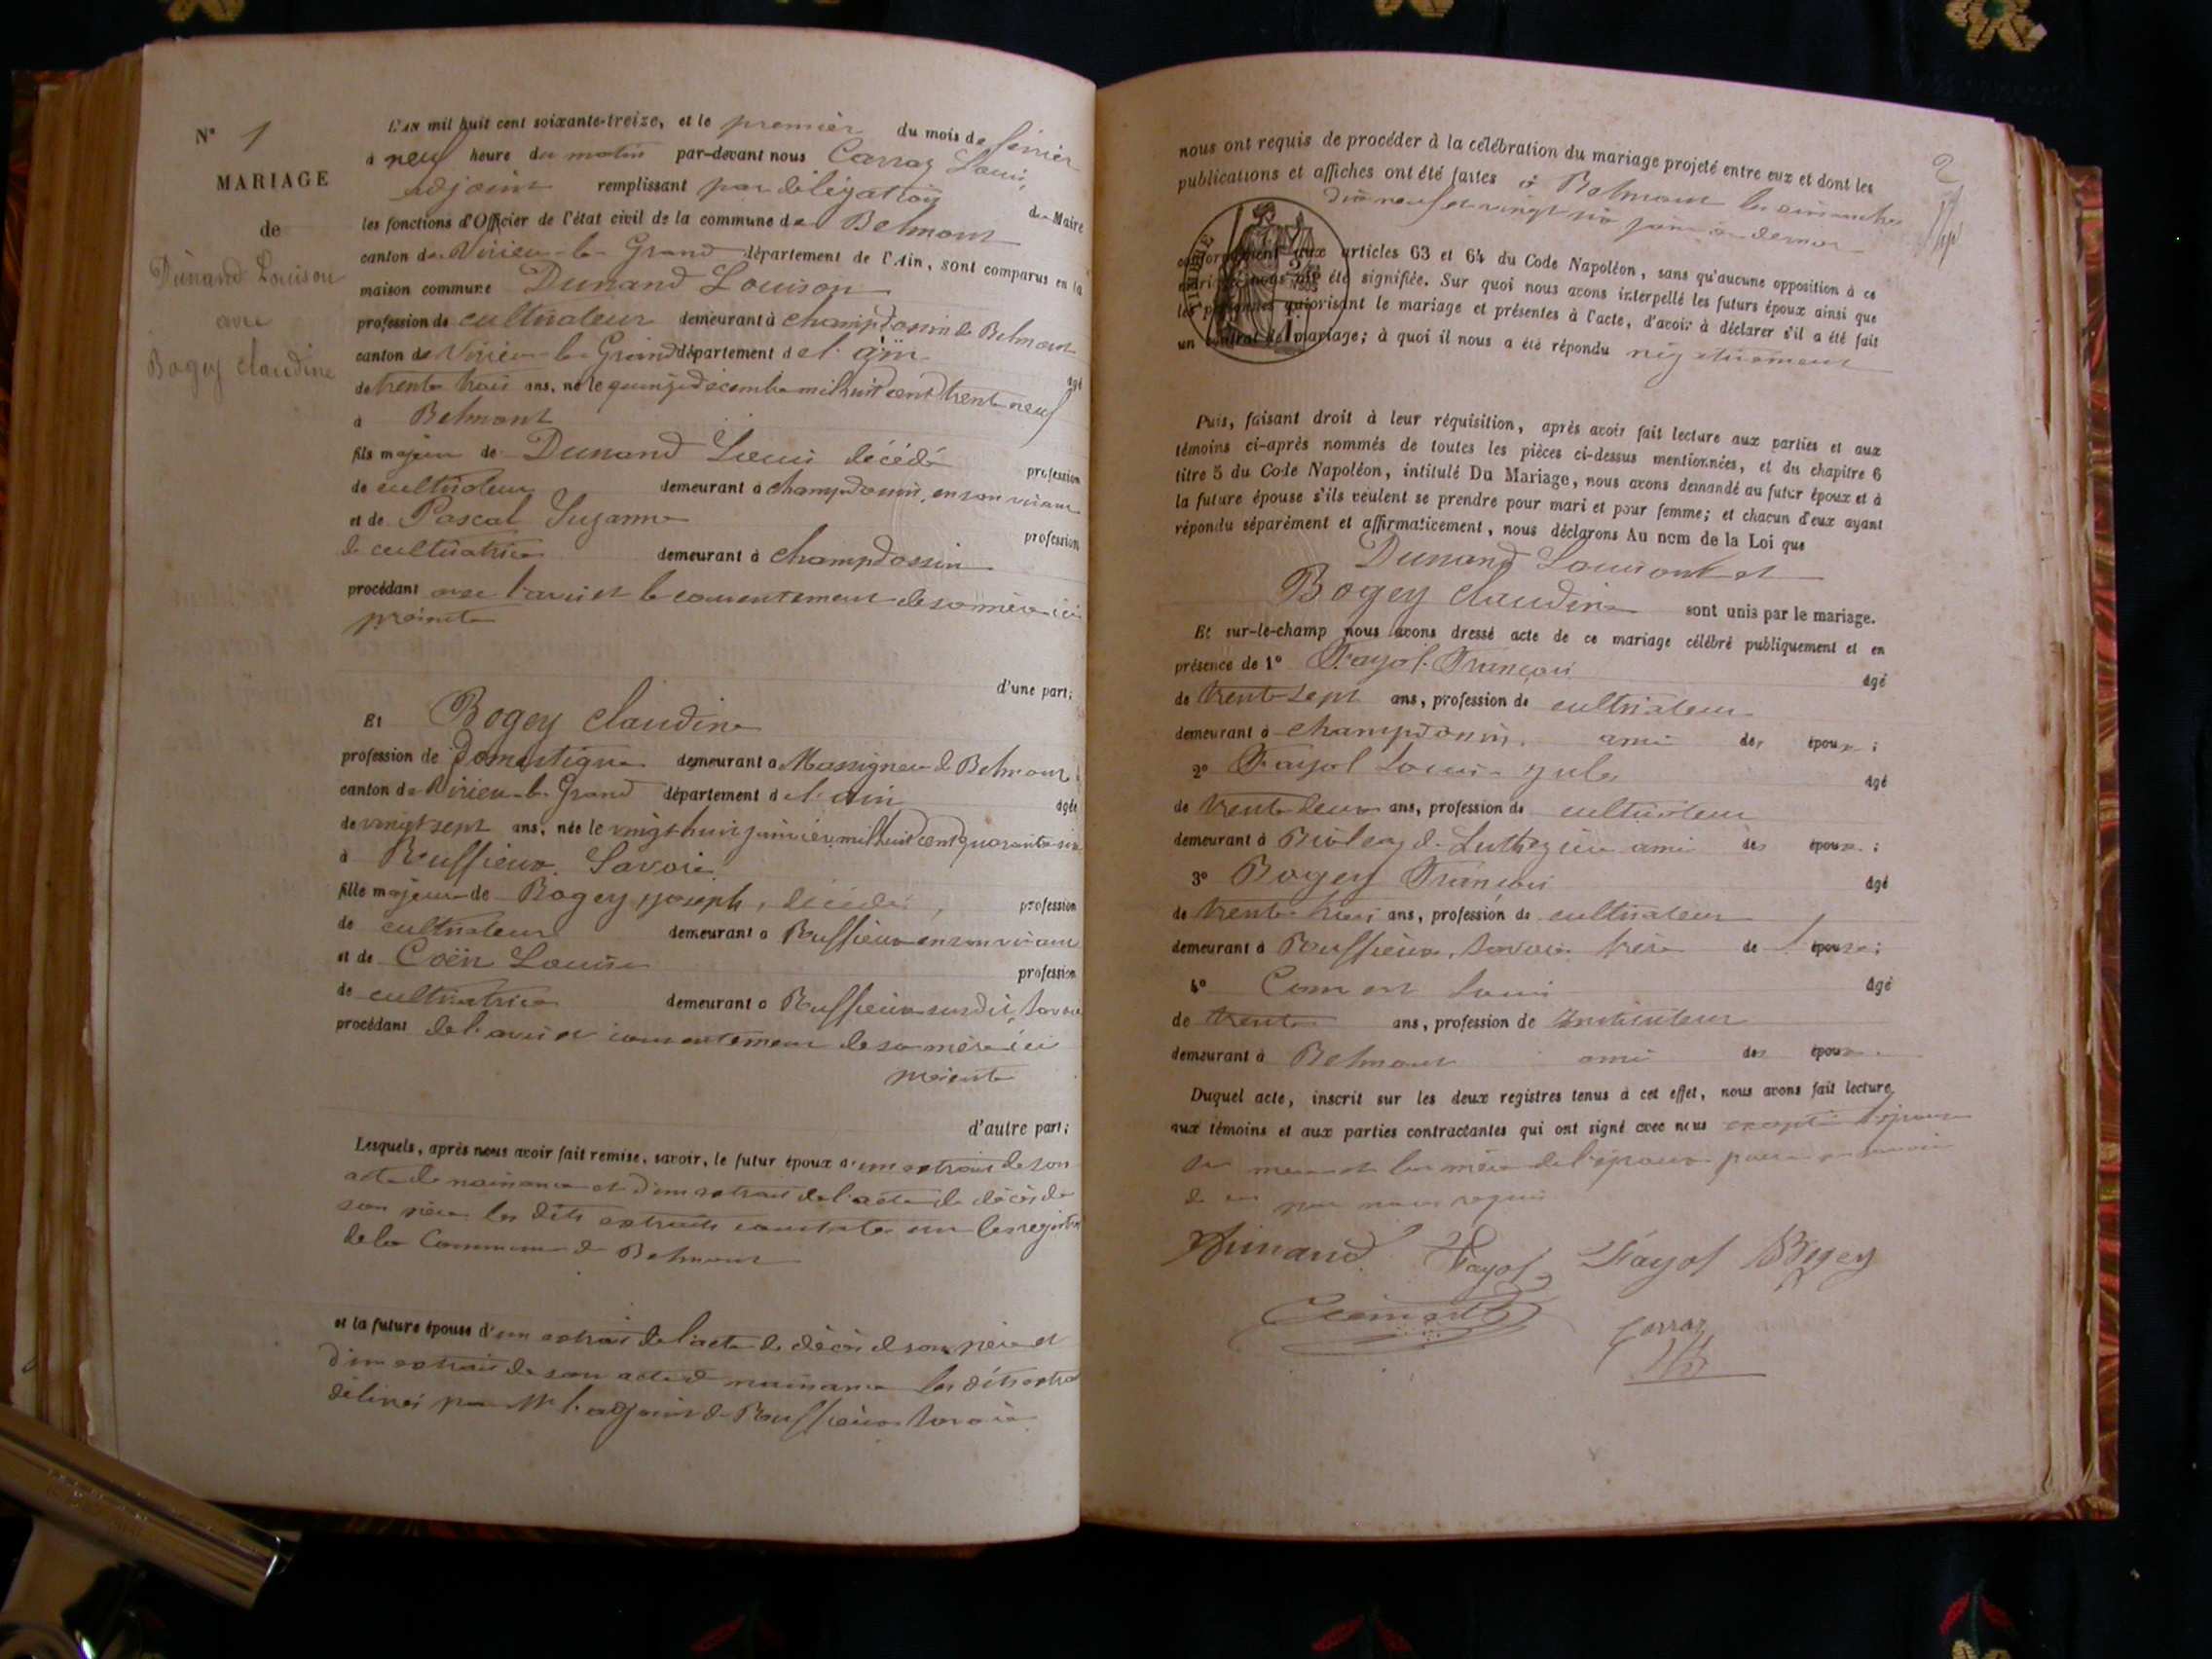 N° 1
MARIAGE
de
Dunand Louison
avec
Bogey Claudine
L'AN mil huit cent soixante-treize, et le premier du mois de février
à neuf heure du matin par-devant nous Carraz Louis,
adjoint remplissant par délégation du Maire
les fonctions d'Officier de l'état civil de la commune de Belmont
canton de Virieu-le-Grand département de l'Ain, sont comparus en la
maison commune Dunand Louison
profession de cultivateur demeurant à Champdossin de Belmont
canton de Virieu-le-Grand département de l'ain âgé
de trente trois ans, né le quinze décembre mil huit cent trente neuf
à Belmont
fils majeur de Dunand Louis décédé profession
de cultivateur demeurant à champdossin, en son vivant
et de Pascal Suzanne profession
de cultivatrice demeurant à champdossin
procédant avec l'avis et le consentement de sa mère ici
présente
d'une part;
Et Bogey Claudine
profession de domestique demeurant à Massignieu de Belmont
canton de Virieu-le-Grand département de l'ain âgée
de vingt sept ans, née le vingt huit janvier mil huit cent quarante six
à Ruffieux Savoie
fille majeure de Bogey joseph, décédé, profession
de cultivateur demeurant à Ruffieux en son vivant
et de Coën Louise profession
de cultivatrice demeurant à Ruffieux susdit, Savoie
procédant de l'avis et consentement de sa mère ici
présente
d'autre part;
Lesquels, après nous avoir fait remise, savoir, le futur époux d'un extrait de son
acte de naissance et d'un extrait de l'acte de décès de
son père les dits extraits constatés sur les registres
de la Commune de Belmont
et la future épouse d'un extrait de l'acte de décès de son père et
d'un extrait de son acte de naissance les dits extraits
délivrés par Mr l'adjoint de Ruffieux Savoie
2
nous ont requis de procéder à la célébration du mariage projeté entre eux et dont les
publications et affiches ont été faites à Belmont les dimanches
dix neuf et vingt six janvier dernier
conformément aux articles 63 et 64 du Code Napoléon, sans qu'aucune opposition à ce
mariage nous ait été signifiée. Sur quoi nous avons interpellé les futurs époux ainsi que
les personnes autorisant le mariage et présentes à l'acte, d'avoir à déclarer s'il a été fait
un contrat de mariage; à quoi il nous a été répondu négativement
Puis, faisant droit à leur réquisition, après avoir fait lecture aux parties et aux
témoins ci-après nommés de toutes les pièces ci-dessus mentionnées, et du chapitre 6
titre 5 du Code Napoléon, intitulé Du Mariage, nous avons demandé au futur époux et à
la future épouse s'ils veulent se prendre pour mari et pour femme; et chacun d'eux ayant
répondu séparément et affirmativement, nous déclarons Au nom de la Loi que
Dunand Louison et
Bogey Claudine sont unis par le mariage.
Et sur-le-champ nous avons dressé acte de ce mariage célébré publiquement et en
présence de 1° Fayol François âgé
de trente sept ans, profession de cultivateur
demeurant à champdossin, ami des époux;
2° Fayol Louis jules âgé
de trente deux ans, profession de cultivateur
demeurant à de Luthézieu ami des époux;
3° Bogey François âgé
de trente trois ans, profession de cultivateur
demeurant à Ruffieux, Savoie frère de l'épouse;
4° Louis âgé
de trente ans, profession de Instituteur
demeurant à Belmont ami des époux.
Duquel acte, inscrit sur les deux registres tenus à cet effet, nous avons fait lecture
aux témoins et aux parties contractantes qui ont signé avec nous excepté l'épouse
sa mère et la mère de l'époux pour ne savoir
de ce par nous requis
Dunand Fayol Fayol Bogey
Carraz